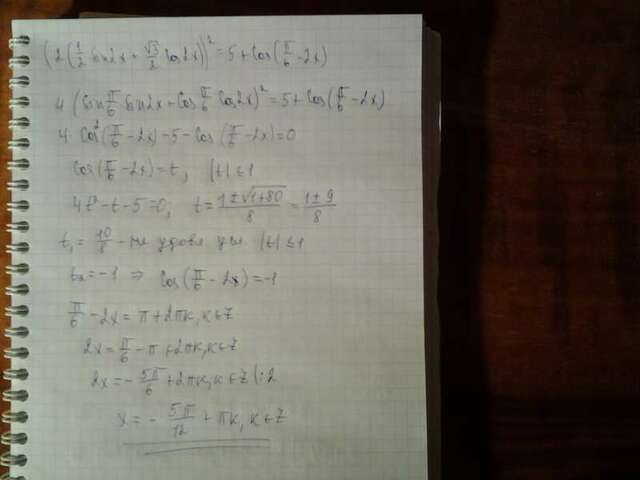 (2(1/2 sin2x + √3/2 cos2x))² = 5 + cos(π/6 - 2x)
4(sin π/6 sin2x + cos π/6 cos2x)² = 5 + cos(π/6 - 2x)
4 cos²(π/6 - 2x) - 5 - cos(π/6 - 2x) = 0
cos(π/6 - 2x) = t, |t| ≤ 1
4t² - t - 5 = 0; t = (1 ± √(1+80))/8 = (1 ± 9)/8
t₁ = 10/8 - не удовл. усл |t| ≤ 1
t₂ = -1 ⇒ cos(π/6 - 2x) = -1
π/6 - 2x = π + 2πк, к ∈ Z
2x = π/6 - π + 2πк, к ∈ Z
2x = - 5π/6 + 2πк, к ∈ Z |:2
x = - 5π/12 + πк, к ∈ Z